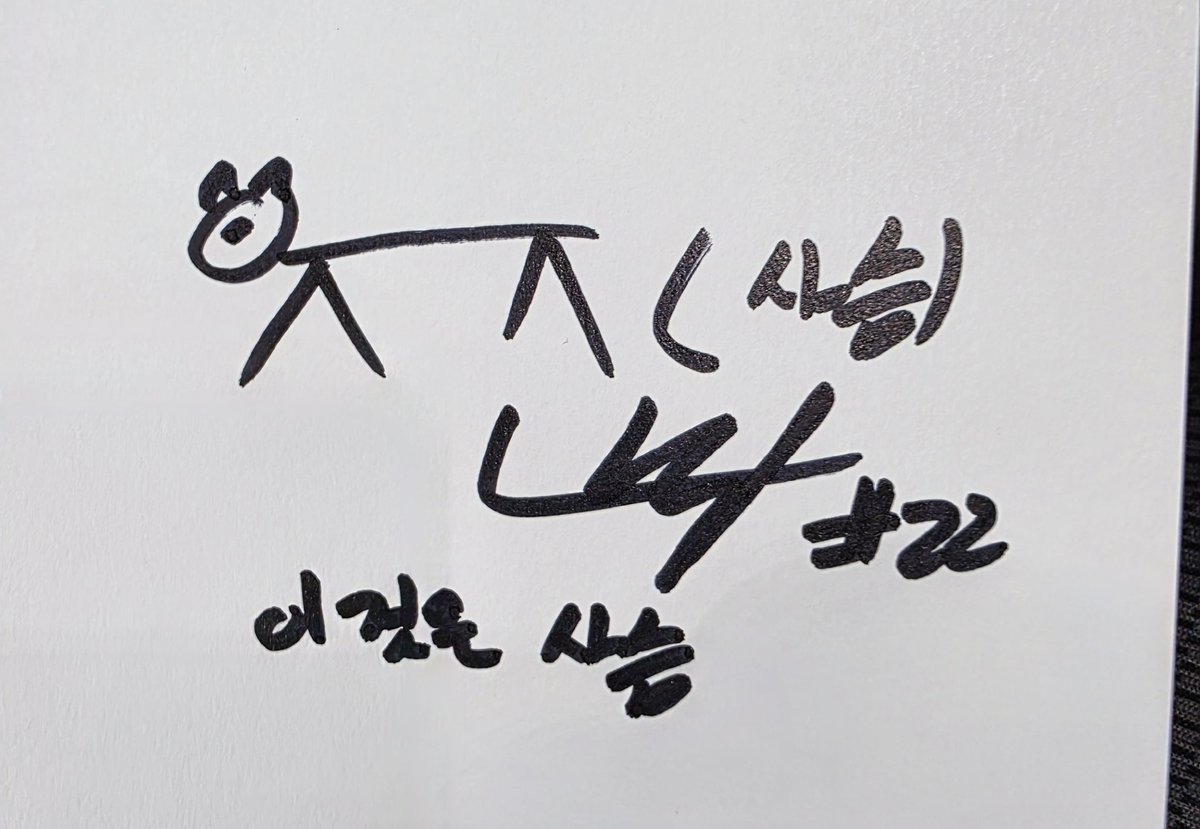 (사슴)
#22
이것은 사슴